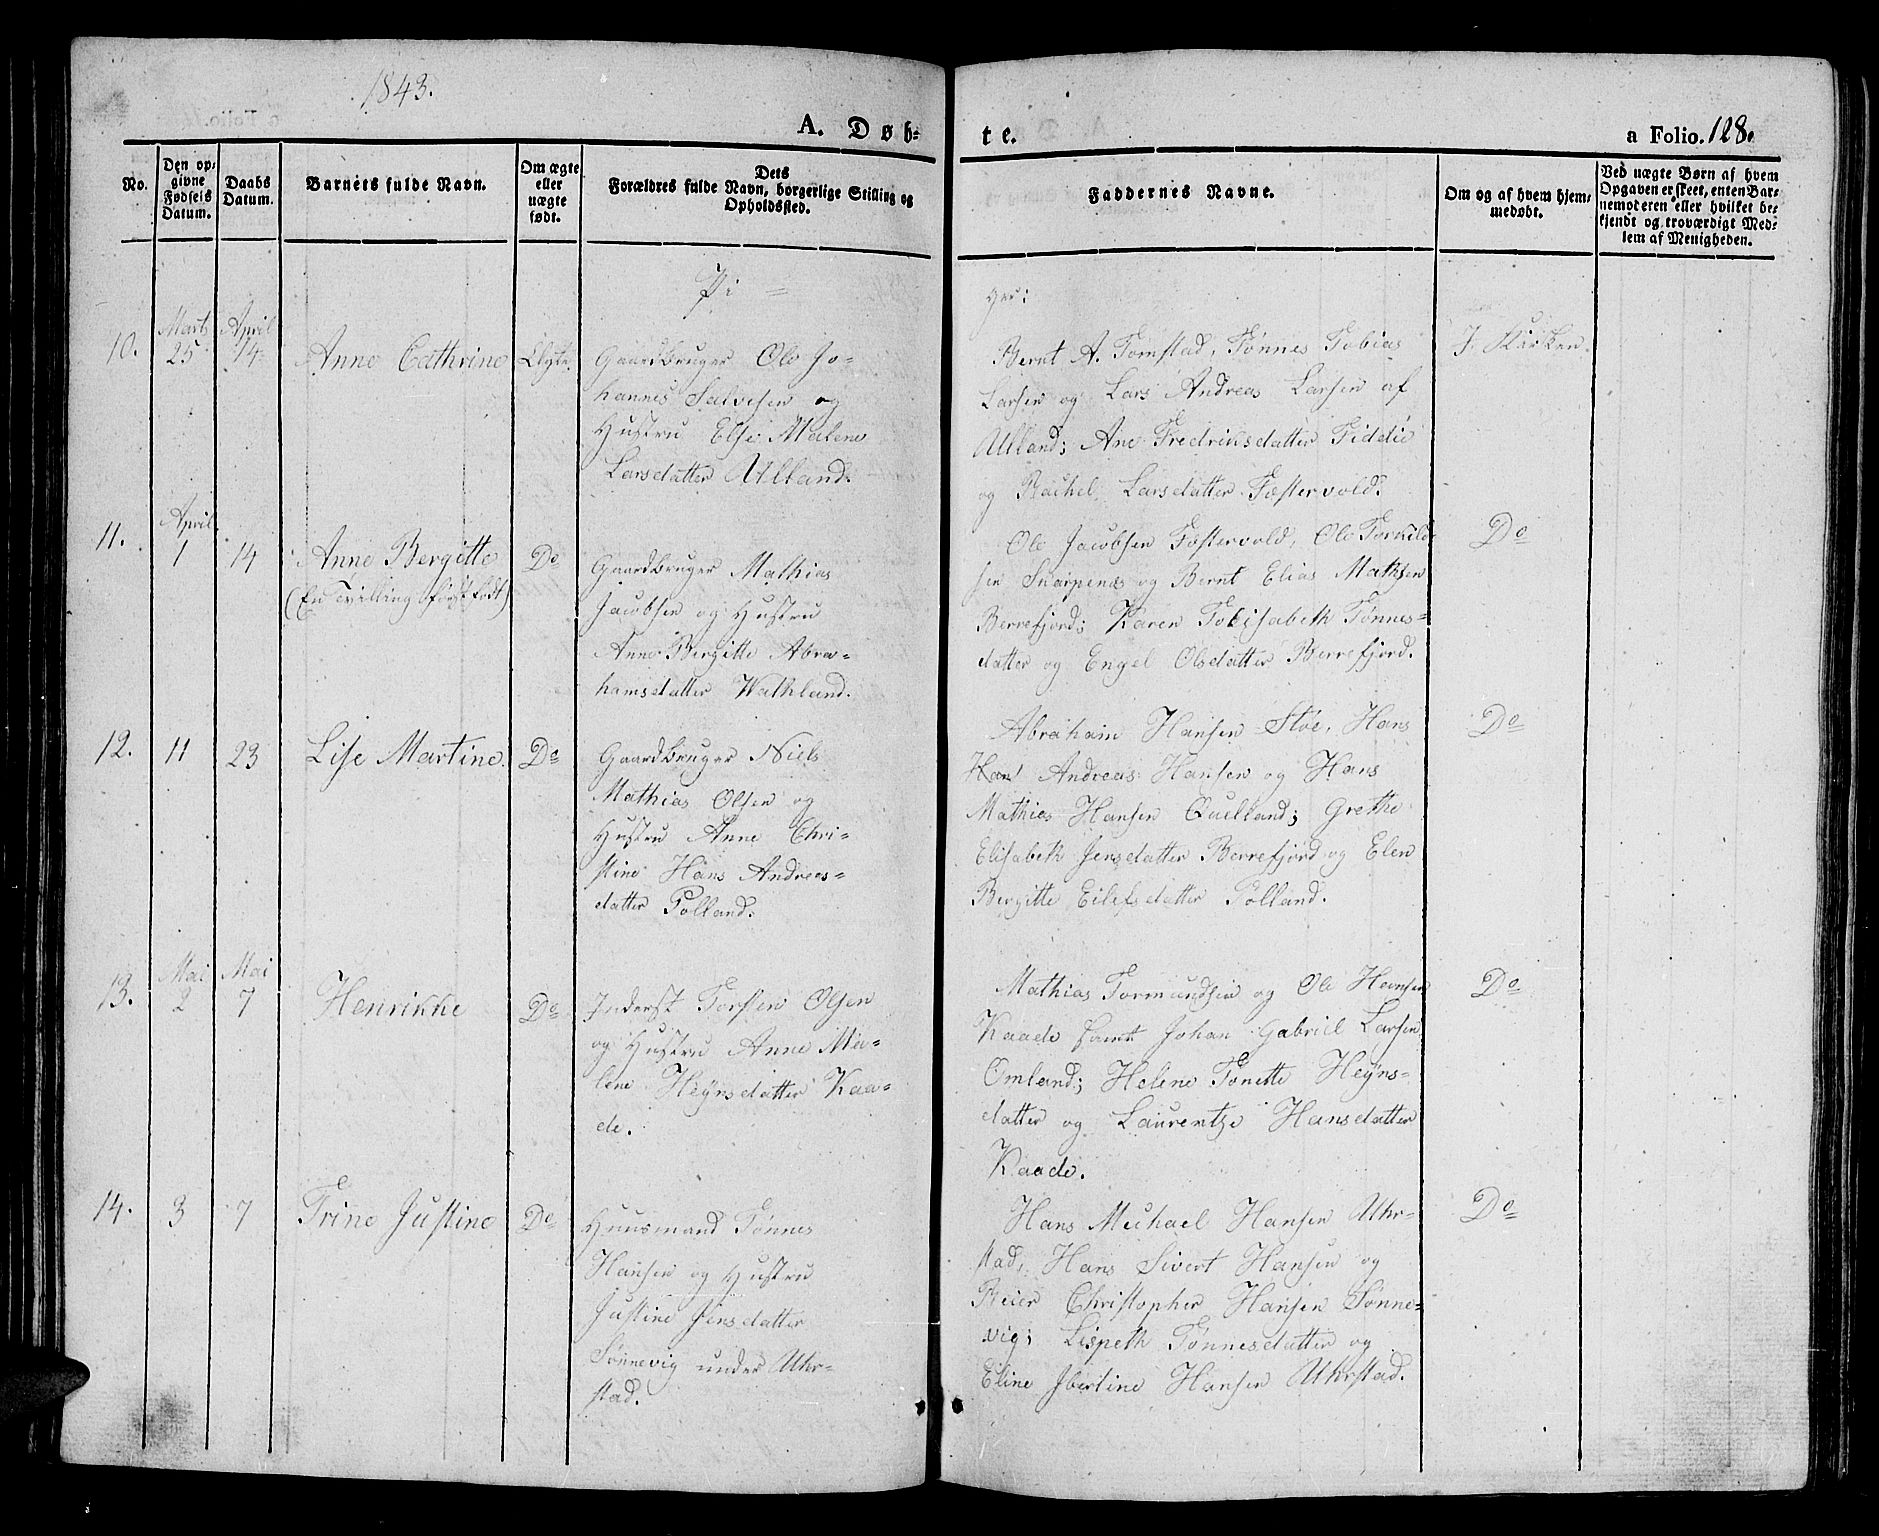 1843.
A. Døb-
te.
a Folio. 128.
No.
Den op-
givne
Fødsels
Datum.
Daabs
Datum.
Barnets fulde Navn.
Om ægte
eller
uægte
født.
Dets
Forældres fulde Navn, borgerlige Stilling og
Opholdssted.
Faddernes Navne.
Om og af hvem hjem-
medøbt.
Ved uægte Børn af hvem
Opgaven er skeet, enten Bar-
nemoderen eller hvilket be-
kjendt og troværdigt Med-
lem af Menigheden.
Pi =
ger:
10.
Marts
25
April
14
Anne Cathrine
Ægte.
Gaardbruger Ole Jo-
hannes Salvesen og
Hustru Else Malene
Larsdatter Ulland.
Bernt A. Tomstad, Tønnes Tobias
Larsen og Lars Andreas Larsen af
Ulland; Ane Fredriksdatter Fiddie
og Rachel Larsdatter Føstervold.
I. Kirken.
11.
April
1
14
Anne Bergitte
(En Tvilling først født)
Do
Gaardbruger Mathias
Jacobsen og Hustru
Anne Bergitte Abra-
hamsdatter Wathland.
Ole Jacobsen Føstervold, Ole Torkild-
sen Snarpenæs og Bernt Elias Mathsen
Berrefjord; Karen Tobisabeth Tønnes-
datter og Engel Olsdatter Berrefjord.
Do
12.
11
23
Lise Martine.
Do
Gaardbruger Niels
Mathias Olsen og
Hustru Anne Chri-
stine Hans Andreas-
datter Polland.
Abraham Hansen Støe, Hans
Andreas Hansen og Hans
Mathias Hansen Quelland; Grethe
Elisabeth Jensdatter Berrefjord og Elen
Bergitte Eilefsdatter Polland.
Do
13.
Mai
2
Mai
7
Henrikke
Do
Inderst Torsten Olsen
og Hustru Anne Ma-
lene Heynsdatter Kaa-
de.
Mathias Tormundsen og Ole Heinsen
Kaade samt Johan Gabriel Larsen
Omland; Helene Tonette Heyns-
datter og Laurentze Hansdatter
Kaade.
Do
14.
3
7
Trine Justine
Do
Huusmand Tønnes
Hansen og Hustru
Justine Jensdatter
Sønnevig under Uhr-
stad.
Hans Michael Hansen Uhr-
stad, Hans Sivert Hansen og
Reier Christopher Hansen Sønne-
vig; Lispeth Tønnesdatter og
Eline Ibertine Hansen Uhrstad.
Do